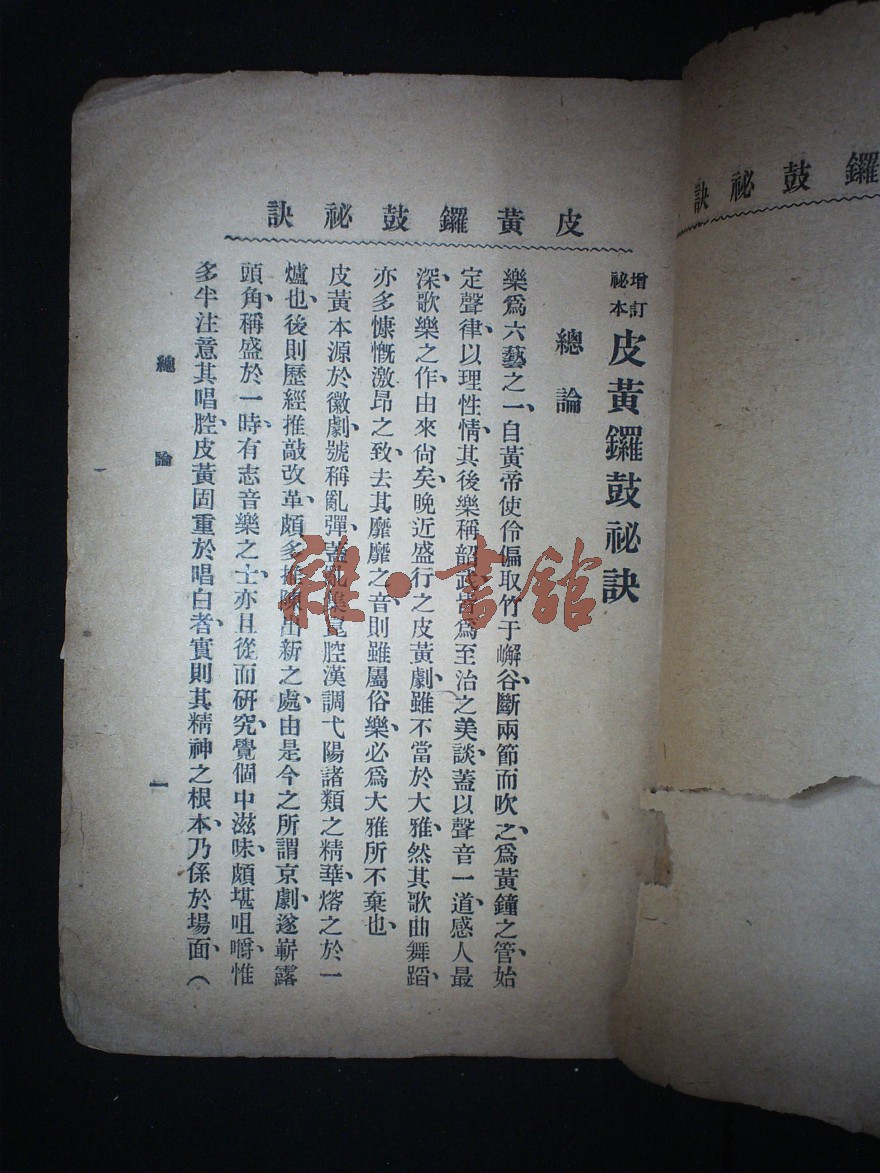 鑼鼓祕訣
皮黃鑼鼓祕訣
增訂祕本 皮黃鑼鼓祕訣
總論
樂爲六藝之一、自黃帝使伶倫取竹于嶰谷斷兩節而吹之、爲黃鐘之管始
定聲律、以理性情、其後樂稱韶武、皆爲至治之美談、蓋以聲音一道、感人最
深、歌樂之作、由來尙矣、晚近盛行之皮黃劇、雖不當於大雅、然其歌曲舞蹈、
亦多慷慨激昂之致、去其靡靡之音、則雖屬俗樂、必爲大雅所不棄也、
皮黃本源於徽劇、號稱亂彈、蓋亂集崑腔漢調弋陽諸類之精華、熔之於一
爐也、後則歷經推敲改革、頗多推陳出新之處、由是今之所謂京劇、遂嶄露
頭角、稱盛於一時、有志音樂之士、亦且從而研究、覺個中滋味、頗堪咀嚼、惟
多半注意其唱腔、皮黃固重於唱白者、實則其精神之根本、乃係於場面、（
總論
一
雜·書館